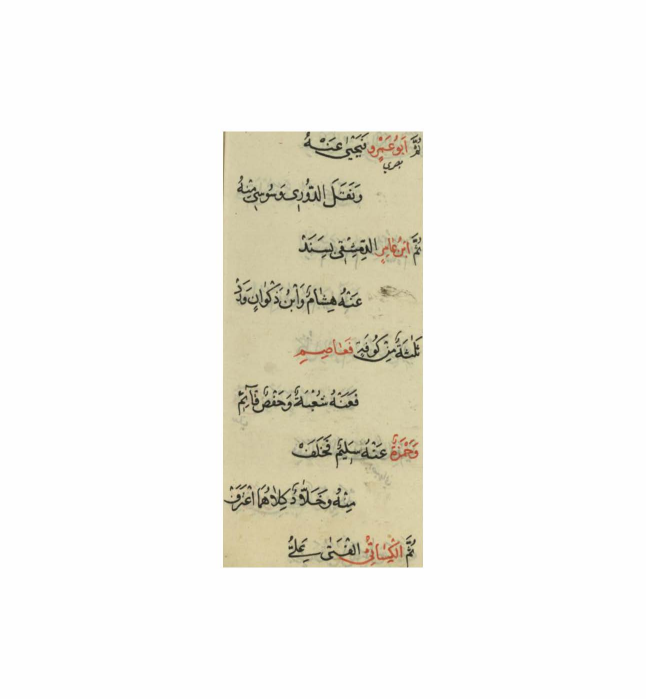 ثُمَّ أَبُو عَمْرٍو فَيَحْيَى عَنْهُ
بصری
وَنَقَلَ الدُّورِي وَسُوسِيْ مِنْهُ
ثُمَّ ابْنُ عَامِرٍ الدِّمِشْقِي بِسَنَدْ
عَنْهُ هِشَامٌ وَابْنُ ذَكْوَانٍ وَرَدْ
ثَلٰثَةٌ مِنْ كُوفَةٍ فَعَاصِمِ
فَعَنْهُ شُعْبَةٌ وَحَفْصٌ قَآئِمْ
وَحَمْزَةٌ عَنْهُ سَلِيْمٌ فَخَلَفْ
مِنْهُ وَخَلَّادٌ كِلَاهُمَا اغْتَرَفْ
ثُمَّ الْكِسَائِيُّ الْفَتَى عَلِيُّ